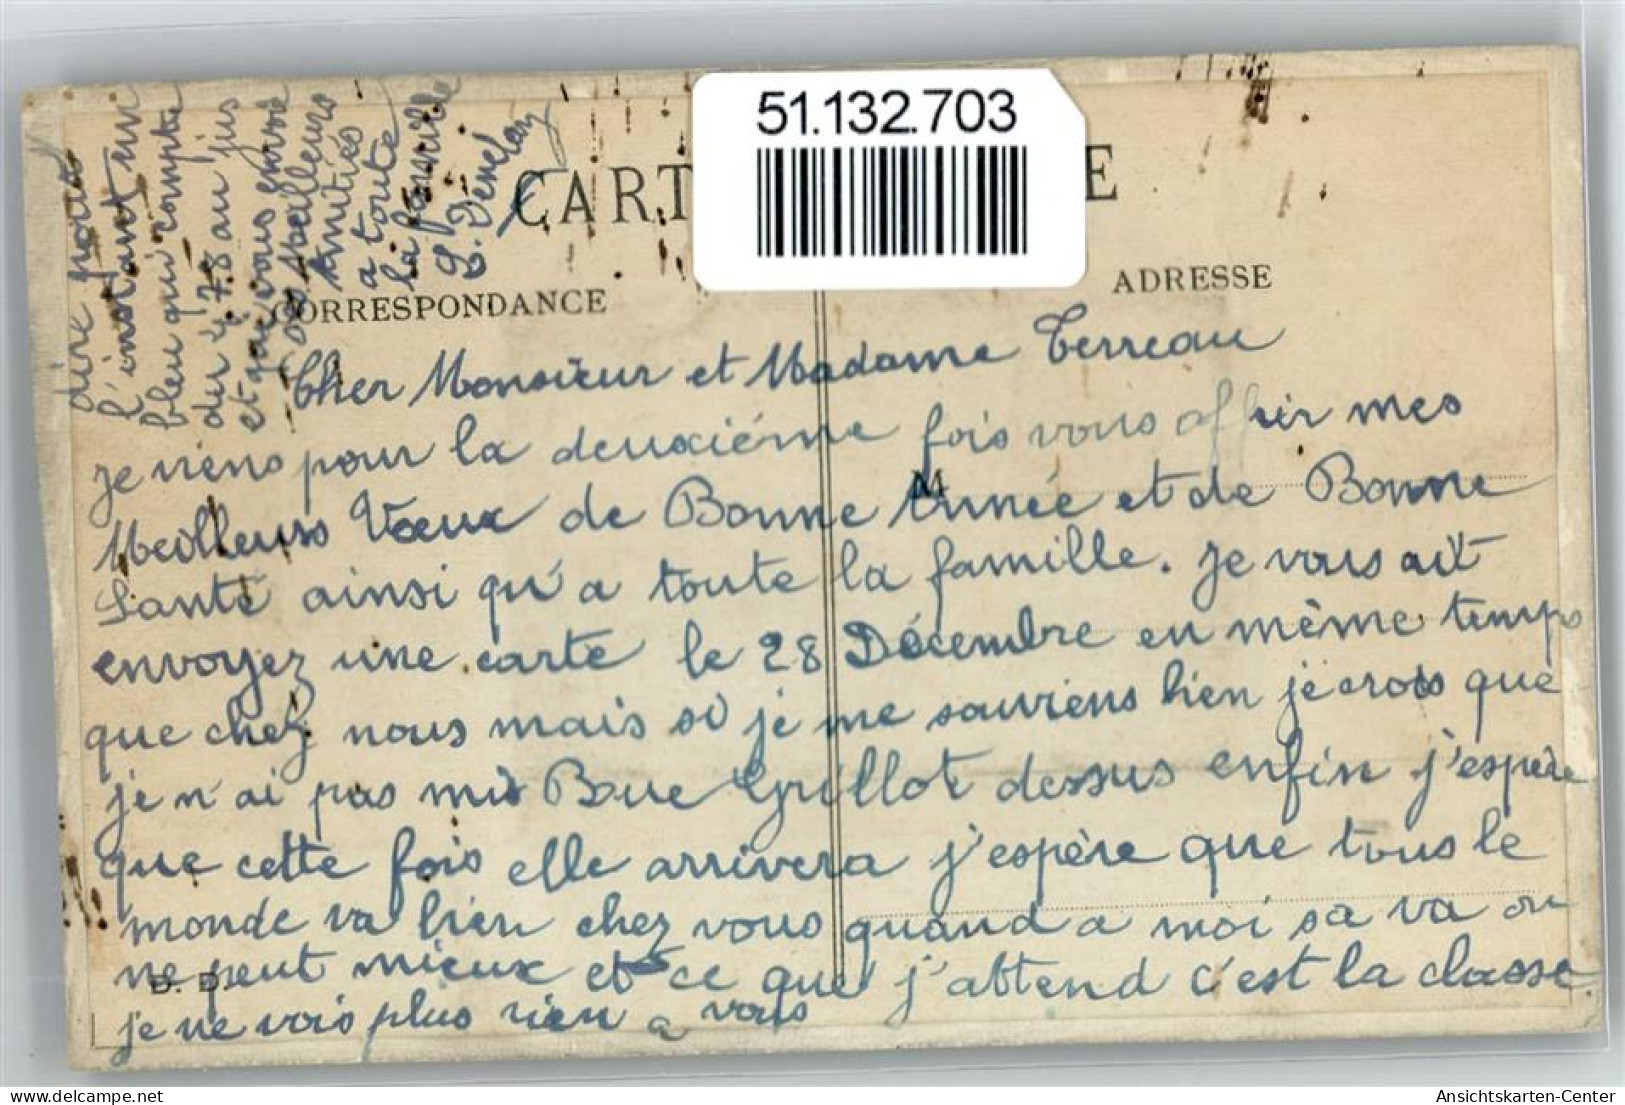 51.132.703
CART
E
CORRESPONDANCE
ADRESSE
Cher Monsieur et Madame Terreau
je viens pour la deuxiéme fois vous offrir mes
M
Meilleurs Voeux de Bonne Année et de Bonne
Santé ainsi qu'a toute la famille. Je vous ait
envoyez une carte le 28 Décembre en même temps
que chez nous mais si je me souviens bien je crois que
je n'ai pas mis Rue Grillot dessus enfin j'espère
que cette fois elle arrivera j'espère que tous le
monde va bien chez vous quand a moi sa va on
ne peut mieux et ce que j'attend c'est la classe
D. D.
je ne vois plus rien a vous
dire pour
l'instant un
bleu qui compte
du 478 au jus
et qui vous envoie
ces Meilleurs
Amitiés
a toute
la famille